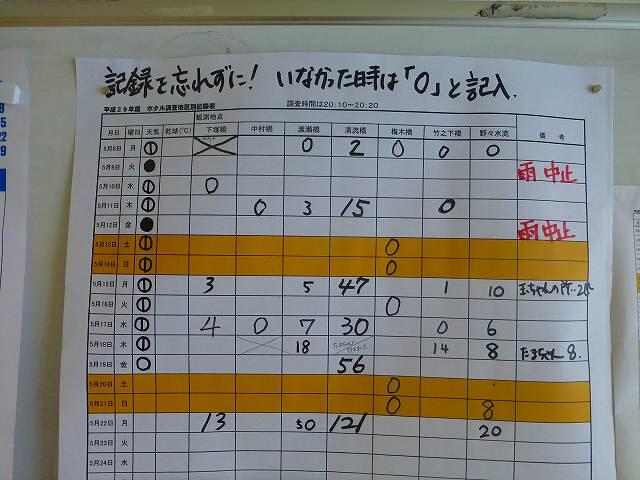 記録を忘れずに! いなかった時は「0」と記入.
平成29年度 ホタル調査地区別記録表 調査時間は20:10~20:20
観測地点
月日 曜日 天気 乾球(℃) 下塚橋 中村橋 渡瀬橋 清流橋 梅木橋 竹之下橋 野々水流 備考
5月8日 月 0 2 0 0 0
5月9日 火 雨中止
5月10日 水 0
5月11日 木 0 3 15 0
5月12日 金 雨中止
5月13日 土 0
5月14日 日 0
5月15日 月 3 5 47 1 10
5月16日 火 0
5月17日 水 4 0 7 30 0 6
5月18日 木 18 14 8 たまちゃん 8.
5月19日 金 56
5月20日 土 0
5月21日 日 0 8
5月22日 月 13 50 121 20
5月23日 火
5月24日 水
8
15
22
29